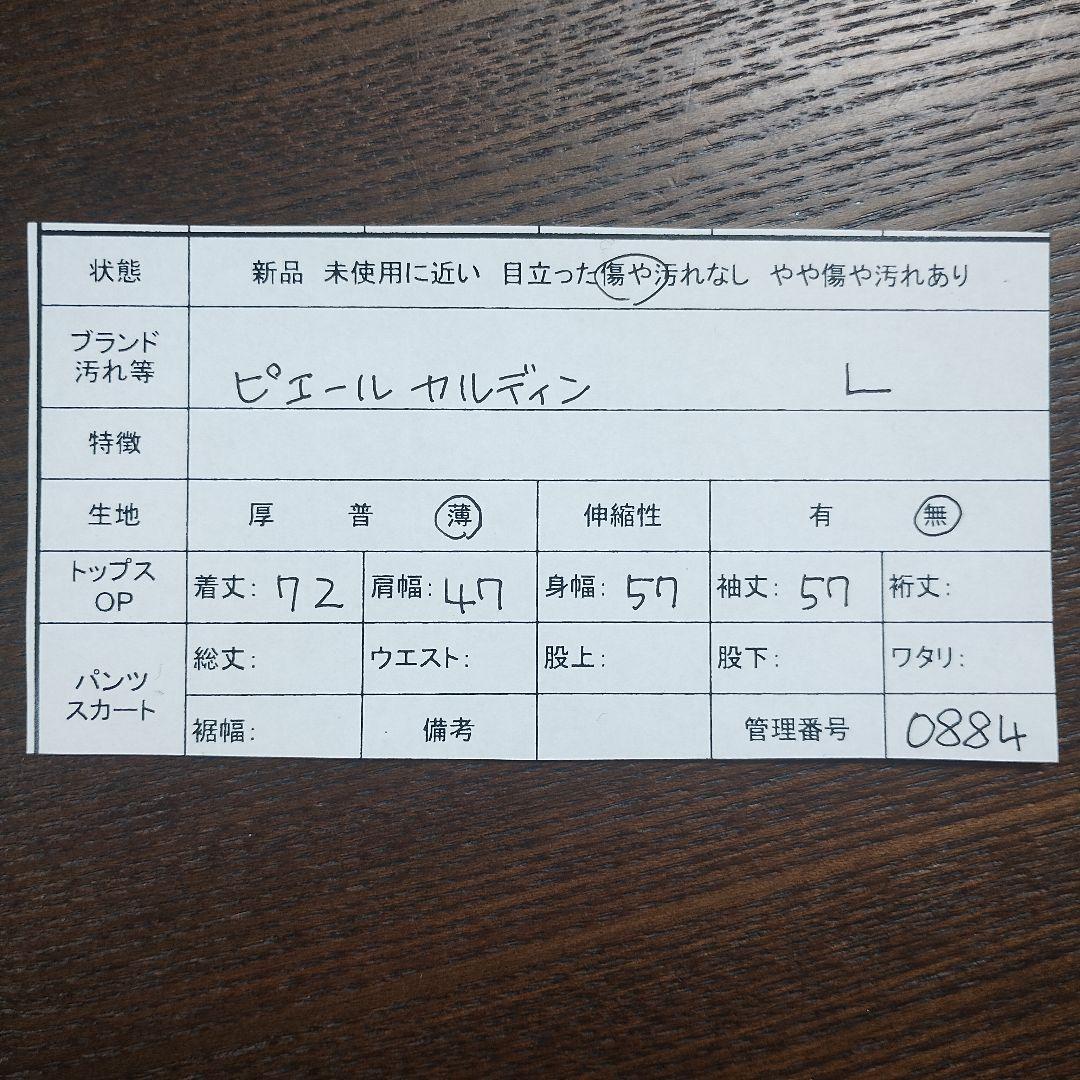 状態 新品 未使用に近い 目立った傷や汚れなし やや傷や汚れあり
ブランド
汚れ等
ピエール カルディン L
特徴
生地 厚 普 薄 伸縮性 有 無
トップス
OP
着丈: 72 肩幅: 47 身幅: 57 袖丈: 57 裄丈:
パンツ
スカート
総丈: ウエスト: 股上: 股下: ワタリ:
裾幅: 備考 管理番号 0884